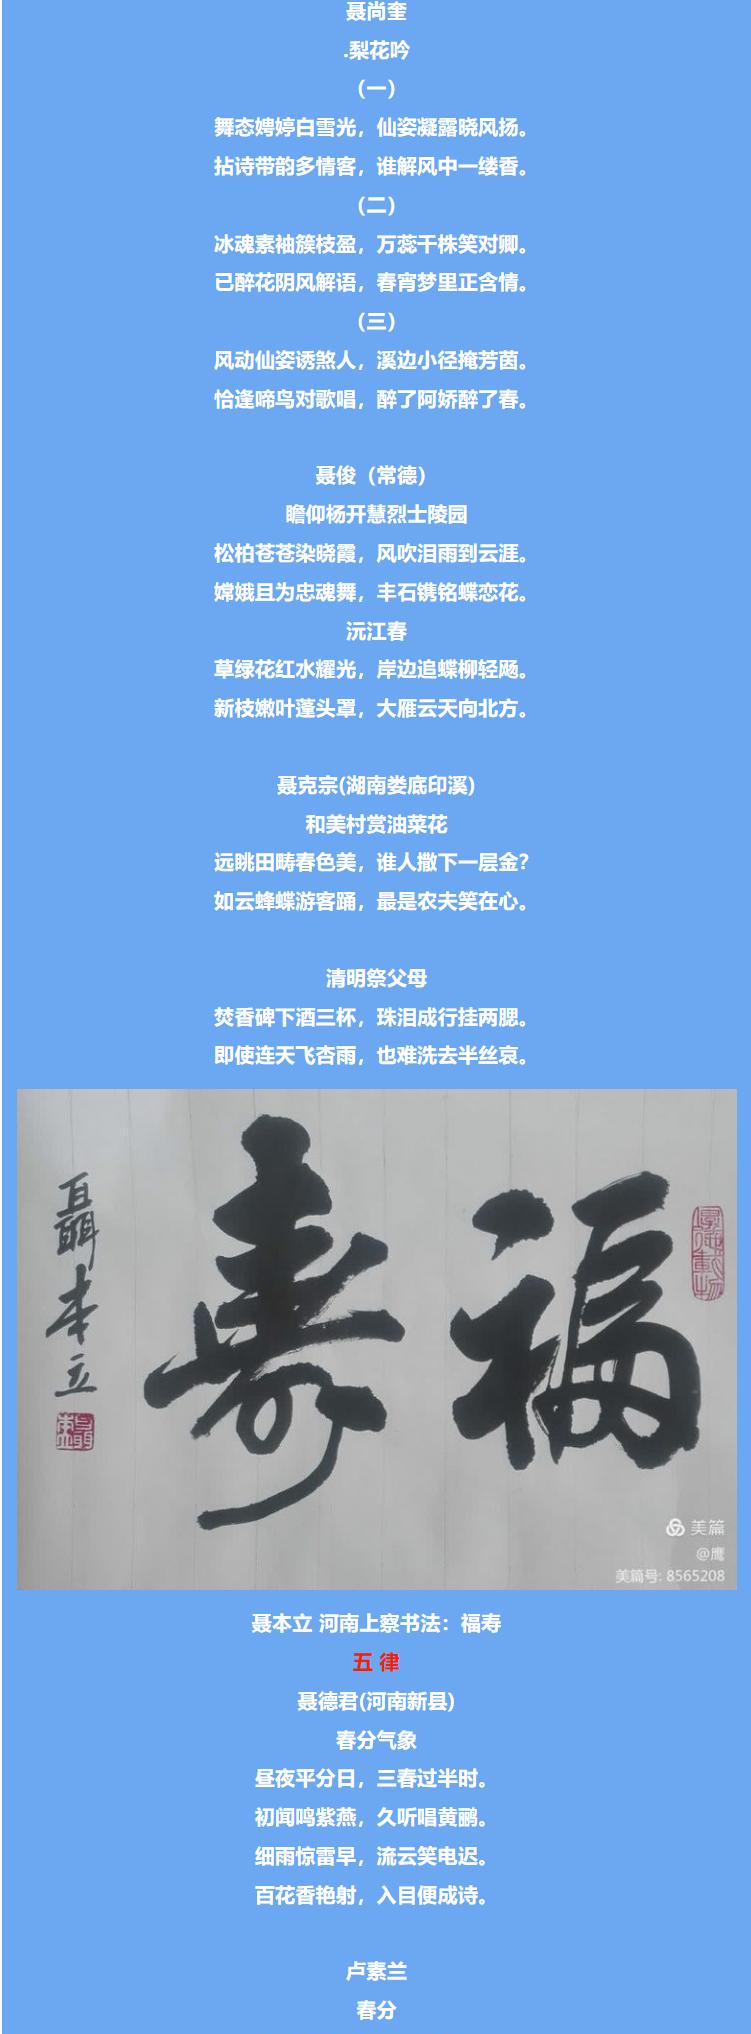 聂尚奎
.梨花吟
（一）
舞态娉婷白雪光，仙姿凝露晓风扬。
拈诗带韵多情客，谁解风中一缕香。
（二）
冰魂素袖簇枝盈，万蕊千株笑对卿。
已醉花阴风解语，春宵梦里正含情。
（三）
风动仙姿诱煞人，溪边小径掩芳茵。
恰逢啼鸟对歌唱，醉了阿娇醉了春。
聂俊（常德）
瞻仰杨开慧烈士陵园
松柏苍苍染晓霞，风吹泪雨到云涯。
嫦娥且为忠魂舞，丰石镌铭蝶恋花。
沅江春
草绿花红水耀光，岸边追蝶柳轻飏。
新枝嫩叶蓬头罩，大雁云天向北方。
聂克宗(湖南娄底印溪)
和美村赏油菜花
远眺田畴春色美，谁人撒下一层金?
如云蜂蝶游客踊，最是农夫笑在心。
清明祭父母
焚香碑下酒三杯，珠泪成行挂两腮。
即使连天飞杏雨，也难洗去半丝哀。
福寿
聶本立
美篇
@鹰
美篇号: 8565208
聂本立 河南上察书法：福寿
五 律
聂德君(河南新县)
春分气象
昼夜平分日，三春过半时。
初闻鸣紫燕，久听唱黄鹂。
细雨惊雷早，流云笑电迟。
百花香艳射，入目便成诗。
卢素兰
春分